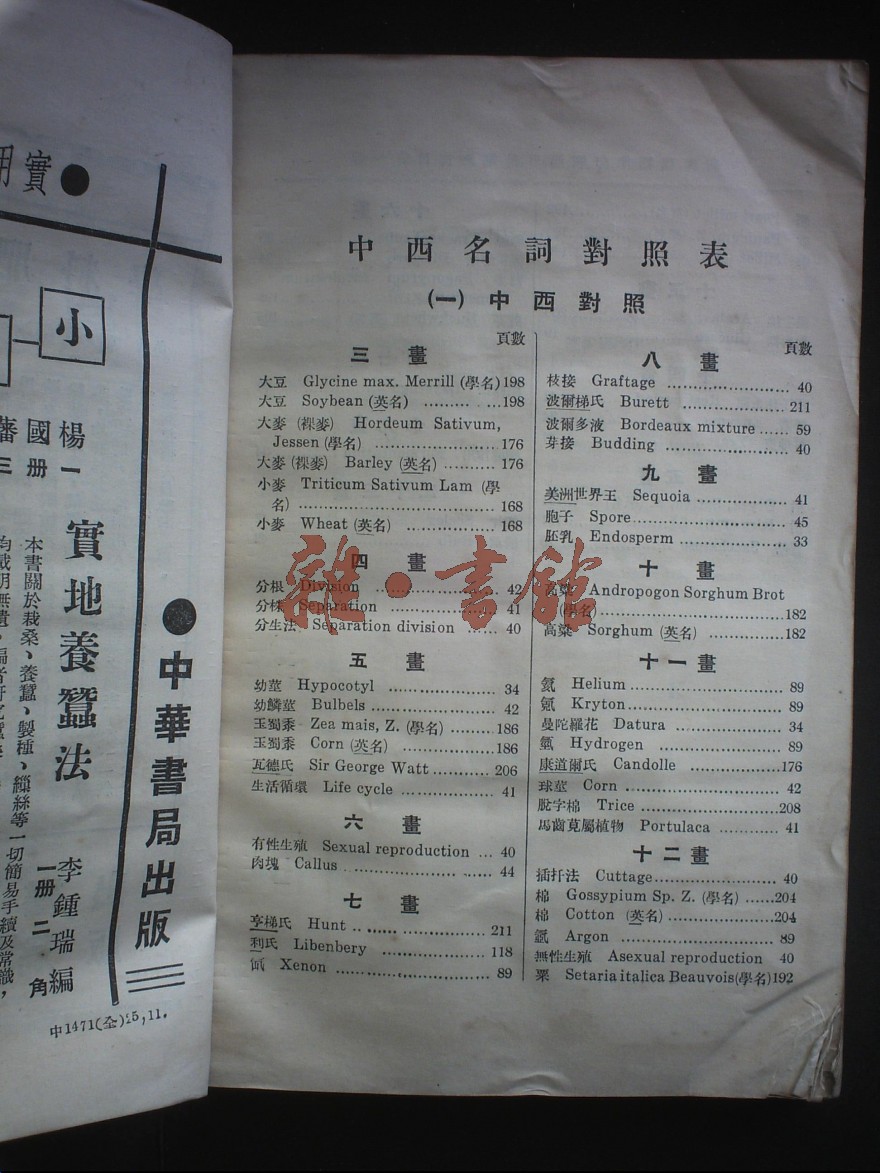 中西名詞對照表
(一)中西對照
頁數
三畫
大豆 Glycine max. Merrill (學名)198
大豆 Soybean (英名) ............198
大麥 (裸麥) Hordeum Sativum,
Jessen (學名) .....................176
大麥 (裸麥) Barley (英名) .........176
小麥 Triticum Sativum Lam (學
名) ..............................168
小麥 Wheat (英名) ...............168
四畫
分根 Division .....................42
分株 Separation ..................41
分生法 Separation division ...... 40
五畫
幼莖 Hypocotyl ..................34
幼鱗莖 Bulbels .....................42
玉蜀黍 Zea mais, Z. (學名) ......186
玉蜀黍 Corn (英名) ...............186
瓦德氏 Sir George Watt ......... 206
生活循環 Life cycle ............... 41
六畫
有性生殖 Sexual reproduction ... 40
肉塊 Callus ........................44
七畫
亨梯氏 Hunt .. .....................211
利氏 Libenbery ..................118
Xenon ........................89
頁數
八畫
枝接 Graftage .................. 40
波爾梯氏 Burett ..................211
波爾多液 Bordeaux mixture ...... 59
芽接 Budding .....................40
九畫
美洲世界王 Sequoia ...............41
胞子 Spore........................45
胚乳 Endosperm ..................33
十畫
高粱 Andropogon Sorghum Brot
(學名) ...........................182
高粱 Sorghum (英名) ............182
十一畫
氦 Helium ........................89
氪 Kryton ........................89
曼陀羅花 Datura ..................34
氫 Hydrogen .....................89
康道爾氏 Candolle ...............176
球莖 Corn ........................42
脫字棉 Trice .....................208
馬齒莧屬植物 Portulaca .........41
十二畫
插扦法 Cuttage ..................40
棉 Gossypium Sp. Z. (學名) ......204
棉 Cotton (英名) ...............204
氬 Argon ........................89
無性生殖 Asexual reproduction 40
粟 Setaria italica Beauvois(學名)192
雜·書館
實
小
楊
國
藩
一
册
三
實地養蠶法
本書關於栽桑、養蠶、製種、繅絲等一切簡易手續及常識，
李鍾瑞編
一册二角
中華書局出版
中1471(全)25,11.